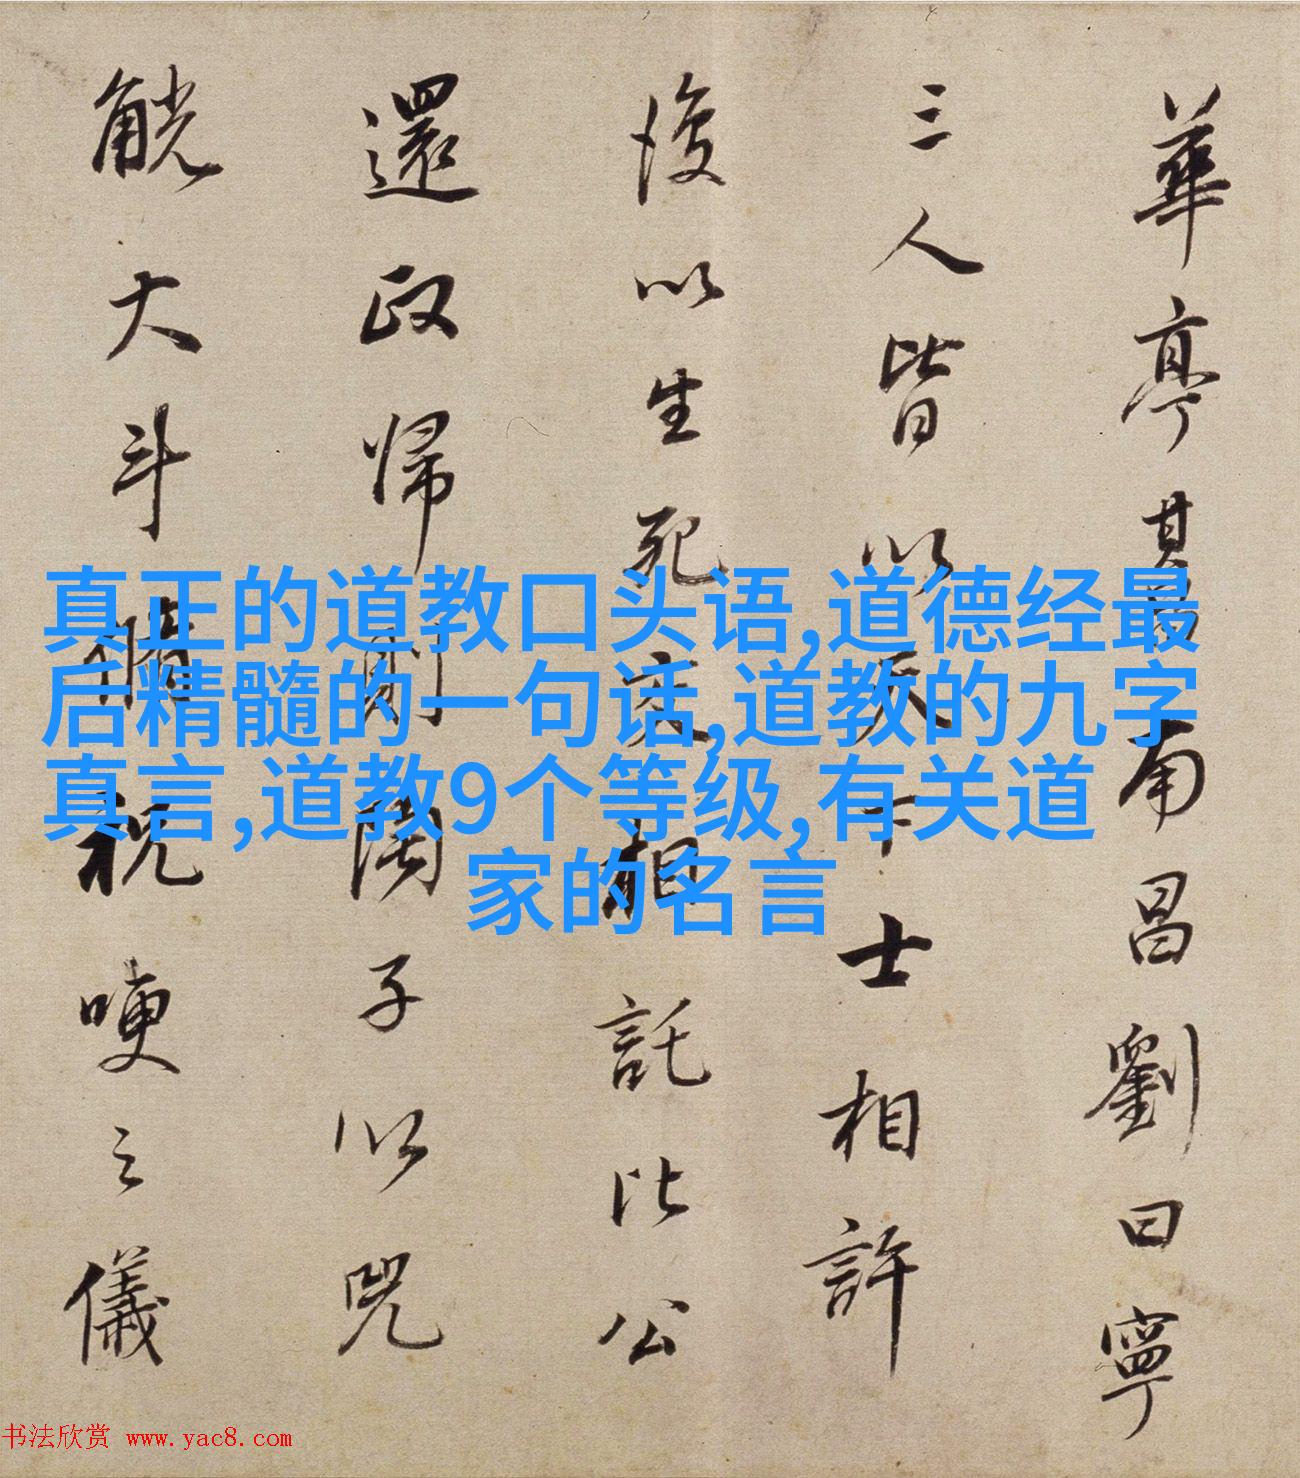 華亭其昌南昌劉曰寧
三人皆以天下士相許
後以生死交相託比公
還政歸則子以兕
觥大斗脩祝哽之儀
真正的道教口头语,道德经最
后精髓的一句话,道教的九字
真言,道教9个等级,有关道
家的名言
书法欣赏 www.yac8.com